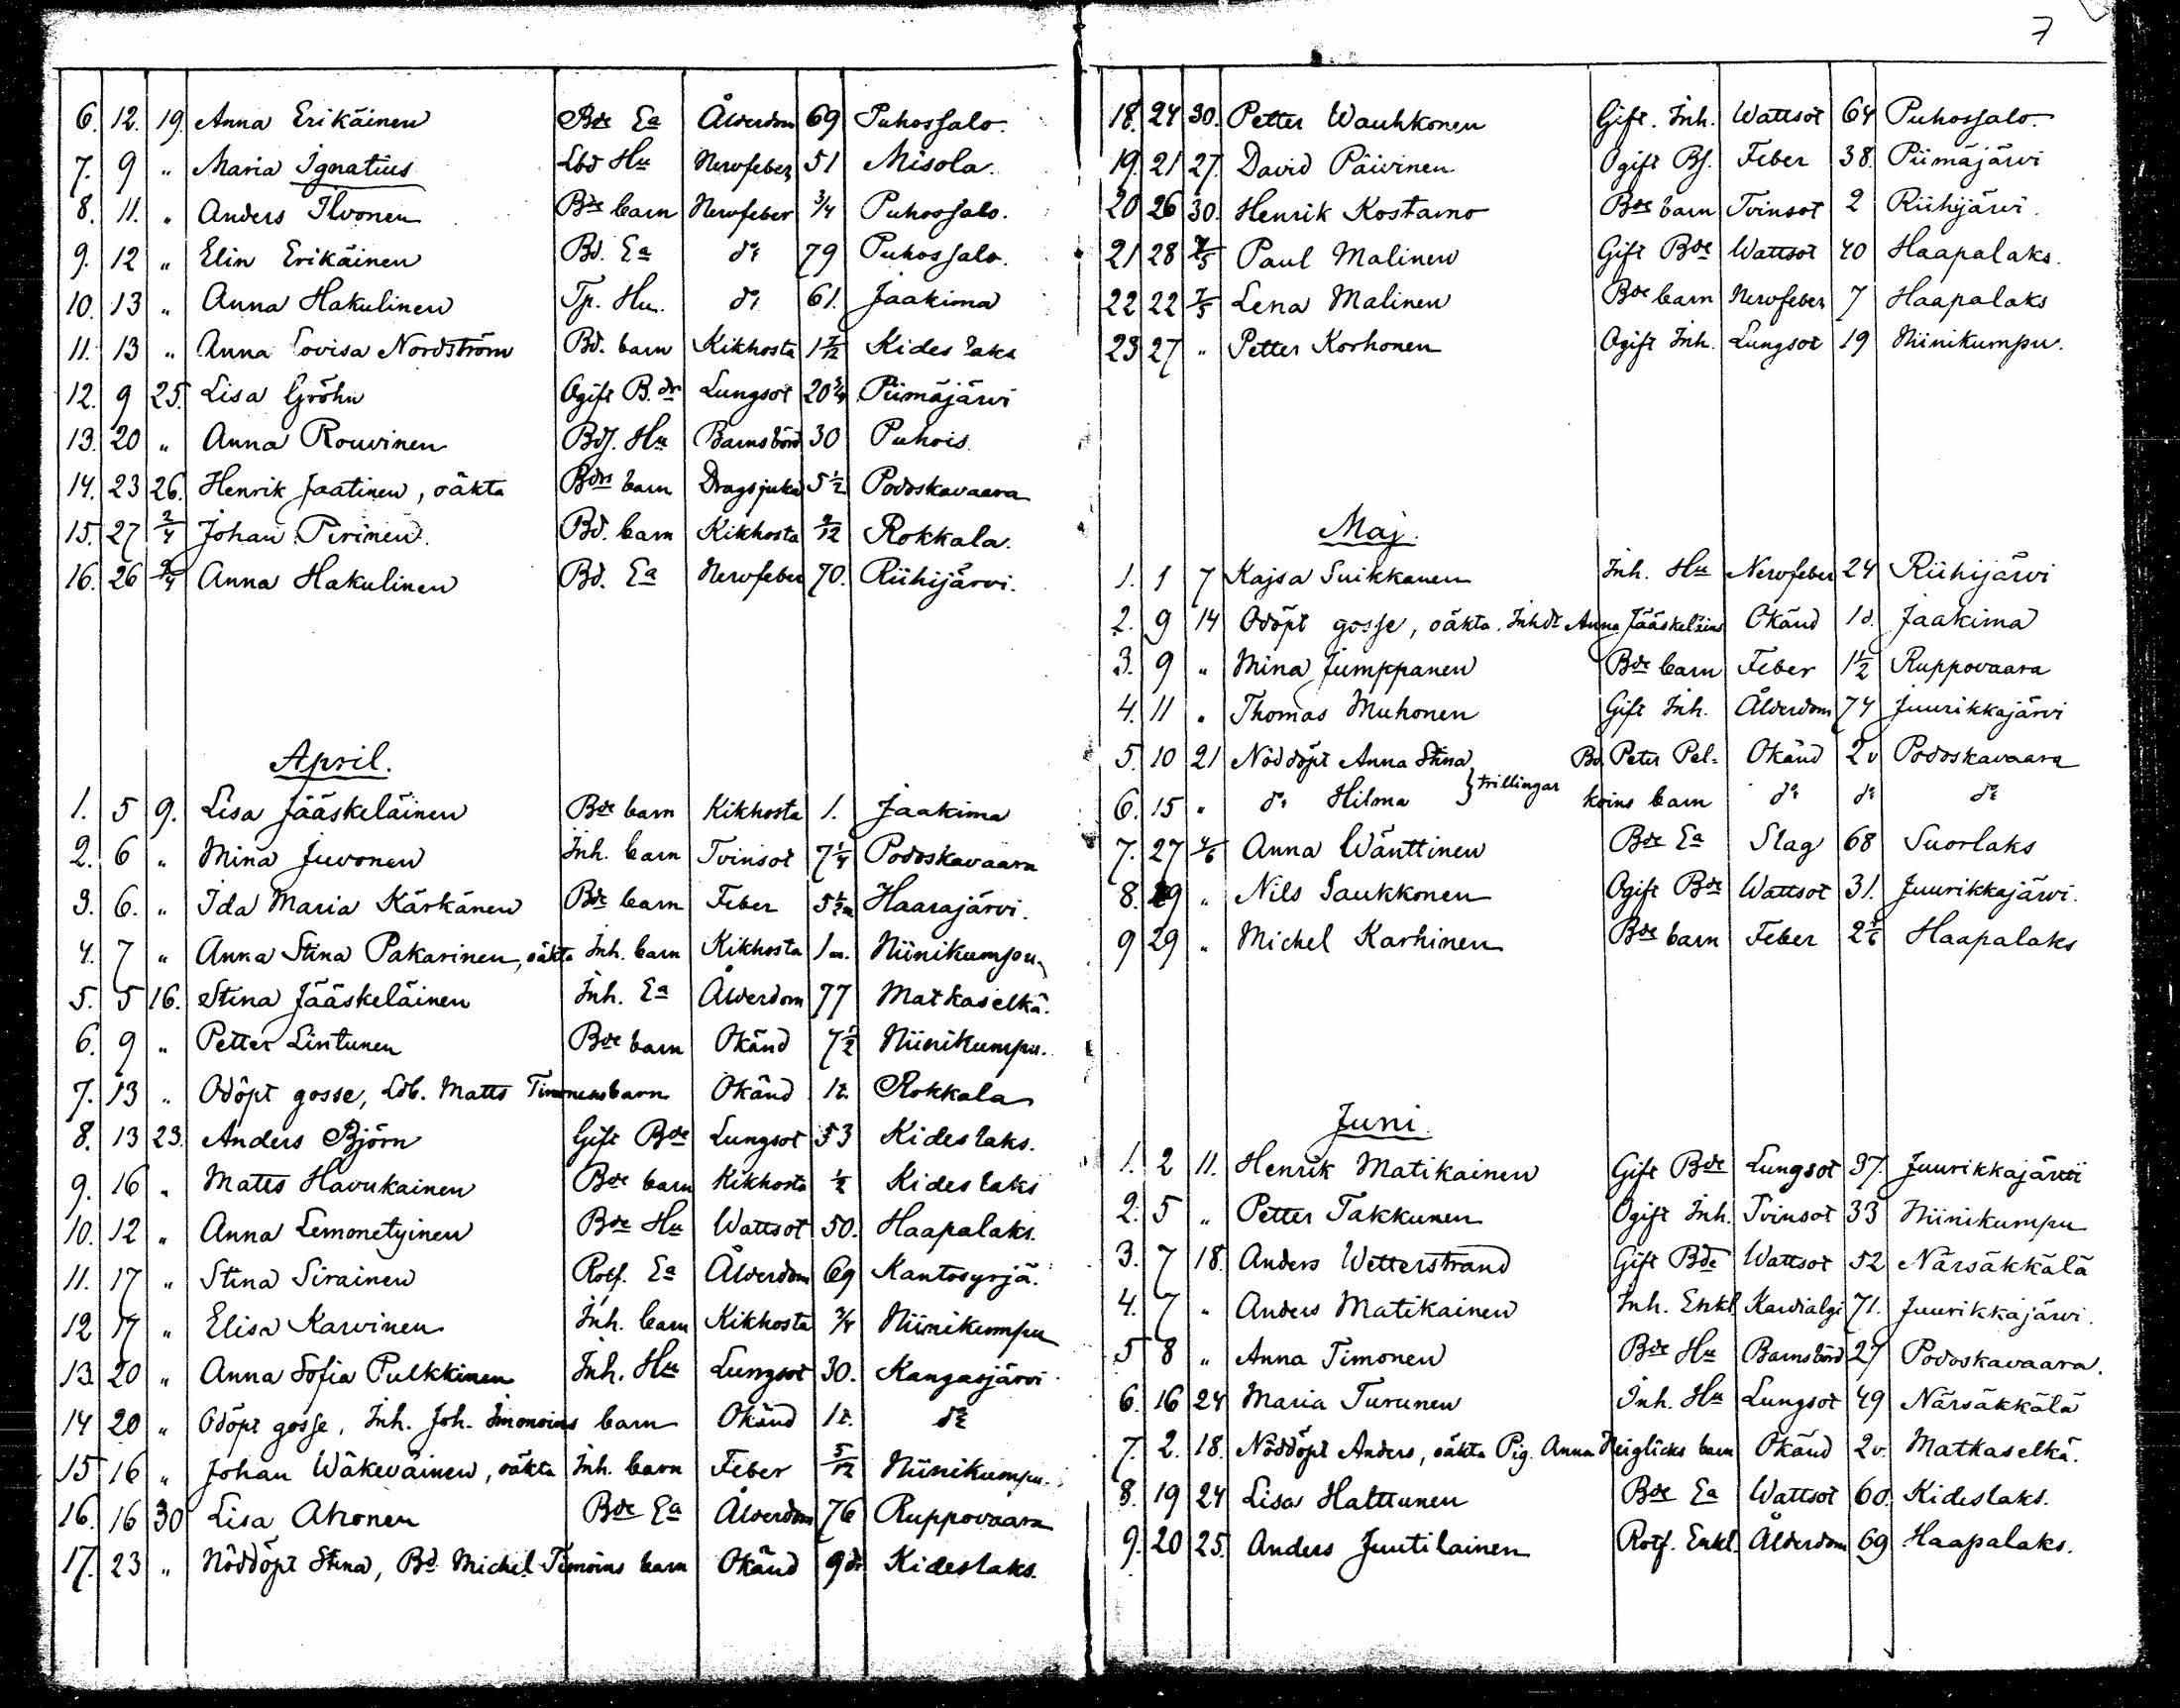 7
6. 12. 19. Anna Erikäinen Bde Ea Ålderdom 69 Puhossalo.
7. 9 " Maria Ignatius Lbd Hu Nervfeber 51 Misola.
8. 11. " Anders Ilvonen Bde barn Nervfeber 3/4 Puhossalo.
9. 12 " Elin Erikäinen Bd. Ea do 79 Puhossalo.
10. 13 " Anna Hakulinen Tp. Hu. do 61. Jaakima
11. 13 " Anna Lovisa Nordström Bd. barn Kikhosta 1 7/12 Kideslaks
12. 9 25. Lisa Gröhn Ogift B. dr Lungsot 20 3/4 Piimäjärvi
13. 20 " Anna Rouvinen Bdf. Hu Barnsbörd 30 Puhois.
14. 23 26. Henrik Jaatinen, oäkta Bdrs barn Dragsjuka 5 1/2 Podoskavaara
15. 27 2/4 Johan Pirinen. Bd. barn Kikhosta 9/12 Rokkala.
16. 26 2/4 Anna Hakulinen Bd. Ea Nervfeber 70. Riihijärvi.
April.
1. 5 9. Lisa Jääskeläinen Bde barn Kikhosta 1. Jaakima
2. 6 " Mina Juvonen Inh. barn Tvinsot 7 1/4 Podoskavaara
3. 6. " Ida Maria Kärkänen Bde barn Feber 5 1/2 m Haarajärvi.
4. 7 " Anna Stina Pakarinen, oäkta Inh. barn Kikhosta 1 m. Niinikumpu
5. 5 16. Stina Jääskeläinen Inh. Ea Ålderdom 77 Matkaselkä.
6. 9 " Petter Lintunen Bde barn Okänd 7 1/2 Niinikumpu.
7. 13 " Odöpt gosse, Ldb. Matts Timonens barn Okänd 1 t. Rokkala
8. 13 23. Anders Björn Gift Bde Lungsot 53 Kideslaks.
9. 16 " Matts Havukainen Bde barn Kikhosta 1/2 Kideslaks
10. 12 " Anna Lemonetyinen Bde Hu Wattsot 50. Haapalaks.
11. 17 " Stina Sirainen Rotf. Ea Ålderdom 69 Kantosyrjä.
12 17 " Elisa Karvinen Inh. barn Kikhosta 3/4 Niinikumpu
13. 20 " Anna Sofia Pulkkinen Inh. Hu Lungsot 30. Kangasjärvi
14 20 " Odöpt gosse, Inh. Joh. Imonoins barn Okänd 1 t. do
15 16 " Johan Wäkeväinen, oäkta Inh. barn Feber 5/12 Niinikumpu.
16. 16 30 Lisa Ahonen Bde Ea Ålderdom 76 Ruppovaara
17. 23 " Nöddöpt Stina, Bd Michel Timoins barn Okänd 9 dr Kideslaks.
18. 24 30. Petter Wauhkonen Gift. Inh. Wattsot 64 Puhossalo.
19. 21 27. David Päivinen Ogift Bf. Feber 38. Piimäjärvi
20 26 30. Henrik Kostamo Bdes barn Tvinsot 2 Riihijärvi.
21 28 7/5 Paul Malinen Gift Bde Wattsot 40 Haapalaks.
22 22 7/5 Lena Malinen Bde barn Nervfeber 7 Haapalaks
23 27 " Petter Korhonen Ogift Inh. Lungsot 19 Niinikumpu.
Maj.
1. 1 7 Kajsa Suikkanen Inh. Hu Nervfeber 24 Riihijärvi
2. 9 14 Odöpt gosse, oäkta. Inhdr Anna Jääskeläins Okänd 1 d. Jaakima
3. 9 " Mina Jumppanen Bde barn Feber 1 1/2 Ruppovaara
4. 11 " Thomas Muhonen Gift Inh. Ålderdom 74 Juurikkajärvi
5. 10 21 Nöddöpt Anna Stina } trillingar Bd. Peter Pel- Okänd 2 v Podoskavaara
6. 15 " do Hilma koins barn do do do
7. 27 4/6 Anna Wänttinen Bde Ea Slag 68 Suorlaks
8. 29 " Nils Saukkonen Ogift Bde Wattsot 31. Juurikkajärvi.
9 29 " Michel Karhinen Bde barn Feber 2 1/6 Haapalaks
Juni.
1. 2 11. Henrik Matikainen Gift Bde Lungsot 37. Juurikkajärvi
2. 5 " Petter Takkunen Ogift Inh. Tvinsot 33 Niinikumpu
3. 7 18. Anders Wetterstrand Gift Bde Wattsot 52 Närsäkkälä
4. 7 " Anders Matikainen Inh. Enkl. Kardialgi 71. Juurikkajärvi.
5 8 " Anna Timonen Bde Hu Barnsbörd 27 Podoskavaara.
6. 16 24 Maria Turunen Inh. Hu Lungsot 49 Närsäkkälä
7. 2. 18. Nöddöpt Anders, oäkta Pig. Anna Heiglicks barn Okänd 2 v. Matkaselkä.
8. 19 24 Lisa Halttunen Bde Ea Wattsot 60. Kideslaks.
9. 20 25. Anders Juutilainen Rotf. Enkl. Ålderdom 69 Haapalaks.